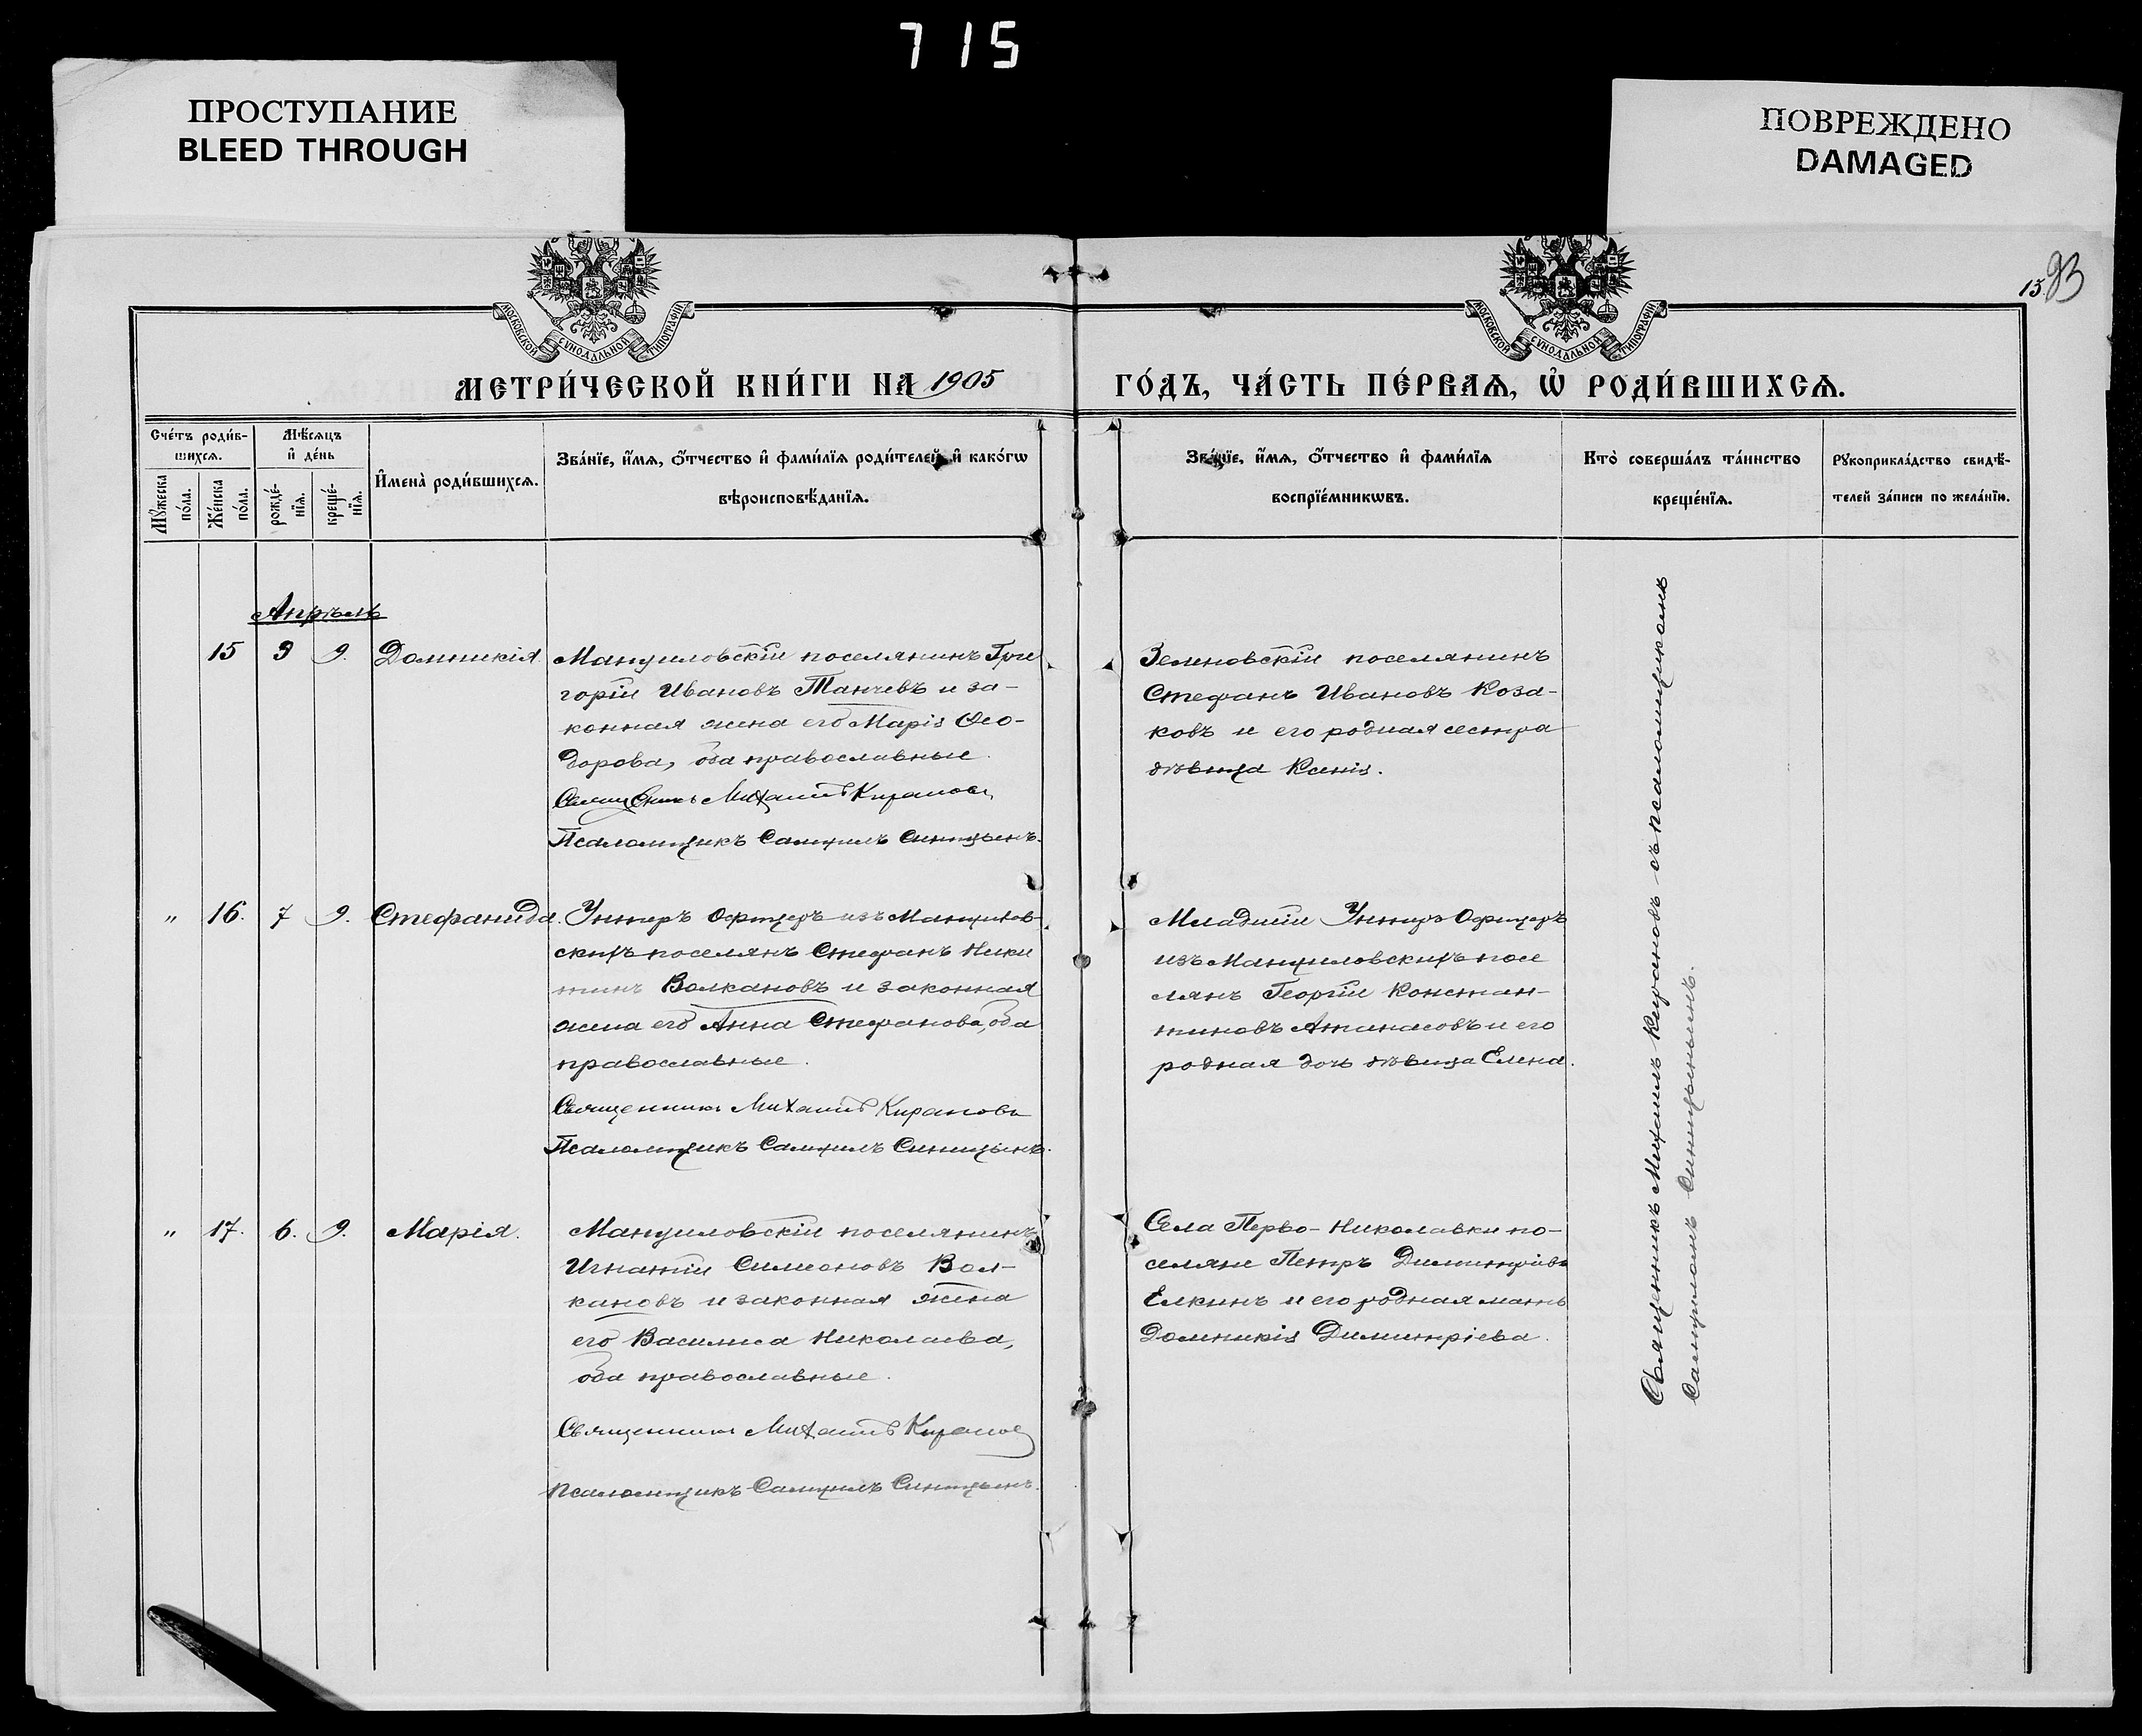 715
ПРОСТУПАНИЕ
BLEED THROUGH
ПОВРЕЖДЕНО
DAMAGED
МОСКОВСКОЙ СѴНОДАЛЬНОЙ ТИПОГРАФІИ
МОСКОВСКОЙ СѴНОДАЛЬНОЙ ТИПОГРАФІИ
15.
93
МЕТРИ́ЧЕСКОЙ КНИ́ГИ НА 1905 ГО́ДЪ, ЧА́СТЬ ПЕ́РВАѦ, Ѡ҆ РОДИ́ВШИХСѦ.
Сче́тъ роди́в-
шихсѧ.
Мѣ́сѧцъ
и҆ де́нь
Мꙋ́жеска
по́ла.
Же́нска
по́ла.
рожде́-
нїѧ.
креще́-
нїѧ.
И҆мена̀ роди́вшихсѧ.
Зва́нїе, и҆́мѧ, ѻ҆́тчество и҆ фами́лїѧ роди́телей, и҆ како́гѡ
вѣроисповѣ́данїѧ.
Зва́нїе, и҆́мѧ, ѻ҆́тчество и҆ фами́лїѧ
воспрїе́мникѡвъ.
Кто̀ соверша́лъ та́инство
креще́нїѧ.
Рꙋкоприкла́дство свидѣ́-
телей за́писи по жела́нїю.
Апрѣль
15 9 9. Домникія
Мануиловскій поселянинъ Гри
горій Ивановъ Танчевъ и за-
конная жена его Марія Ѳео-
дорова, оба православные.
Священникъ Михаилъ Кирановъ
Псаломщикъ Самуилъ Синицынъ.
Зеленовскій поселянинъ
Стефанъ Ивановъ Коза-
ковъ и его родная сестра
дѣвица Ксенія.
" 16. 7 9. Стефанида.
Унтеръ Офицеръ изъ Мануилов-
скихъ поселянъ Стефанъ Ники
тинъ Волкановъ и законная
жена его Анна Стефанова, оба
православные.
Священникъ Михаилъ Кирановъ
Псаломщикъ Самуилъ Синицынъ.
Младшій Унтеръ Офицеръ
изъ Мануиловскихъ посе
лянъ Георгій Констан-
тиновъ Атанасовъ и его
родная дочь дѣвица Елена.
" 17. 6. 9. Марія.
Мануиловскій поселянинъ
Игнатій Симеоновъ Вол-
кановъ и законная жена
его Василиса Николаева,
оба православные.
Священникъ Михаилъ Кирановъ
Псаломщикъ Самуилъ Синицынъ.
Села Перво-Николавки по-
селяне Петръ Димитріевъ
Елкинъ и его родная мать
Домникія Димитріева.
Священникъ Михаилъ Кирановъ съ псаломщикомъ
Самуиломъ Синицынымъ.